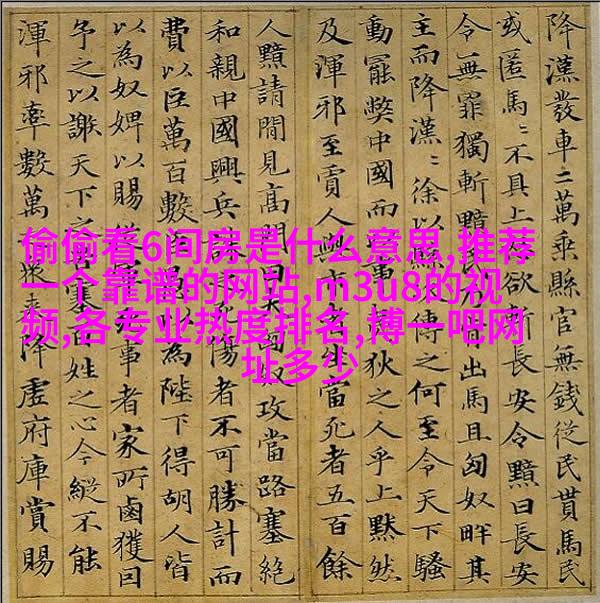 降漢發車二萬乘縣官無錢從民貰馬民
或匿馬〻不具上欲斬長安令黯曰長安
令無罪獨斬黯出馬且匈奴畔其
主而降漢〻徐以縣傳之何至令天下騷
動罷弊中國而狄之人乎上黙然
及渾邪至賈人與市坐當死者五百餘
人黯請間見高門曰匈奴攻當路塞絕
和親中國興兵死傷者不可勝計而
費以巨萬百數以為陛下得胡人皆
以為奴婢以賜死事者家所鹵獲因
予之以謝天下之塞百姓之心今縱不能
渾邪率數萬衆來降虛府庫賞賜
偷偷看6间房是什么意思,推荐
一个靠谱的网站,m3u8的视
频,各专业热度排名,博一吧网
址多少